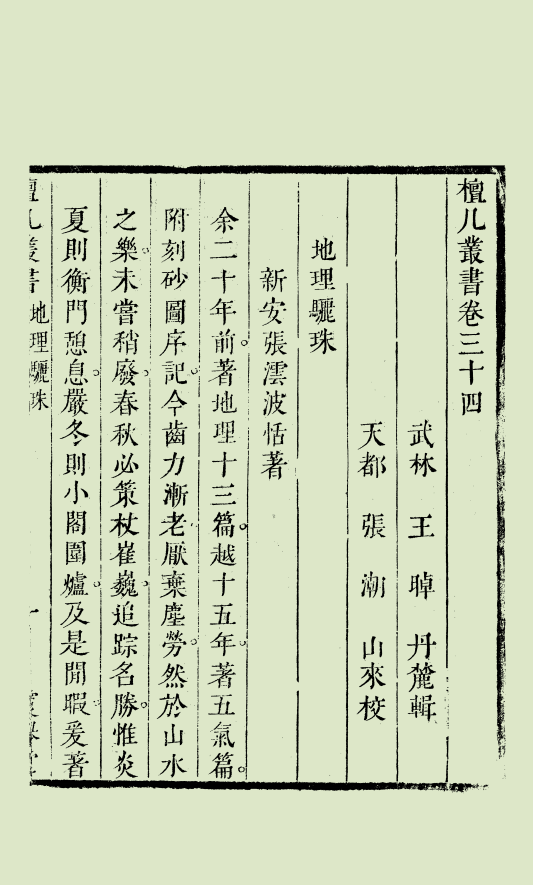 檀几叢書卷三十四
武林　王　晫　丹麓輯
天都　張　潮　山來校
地理驪珠
新安張澐波恬著
余二十年前。著地理十三篇。越十五年。著五氣篇。
附刻砂圖序記。今齒力漸老。厭棄塵勞。然於山水
之樂。未嘗稍廢。春秋必策杖崔巍。追踪名勝。惟炎
夏則衡門憩息。嚴冬則小閣圍爐。及是閒暇。爰著
檀几叢書　地理驪珠　一